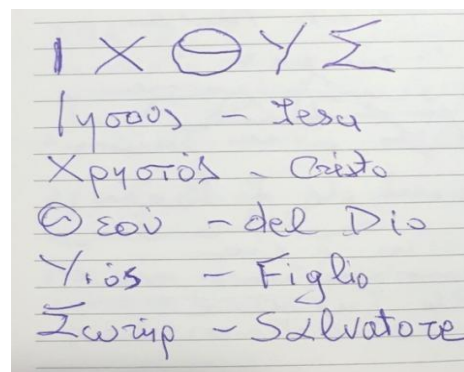 ΙΧΘΥΣ
Ιησους - Iesu
Χρηστός - Cristo
Θεού - del Dio
Υιός - Figlio
Σωτήρ - Salvatore